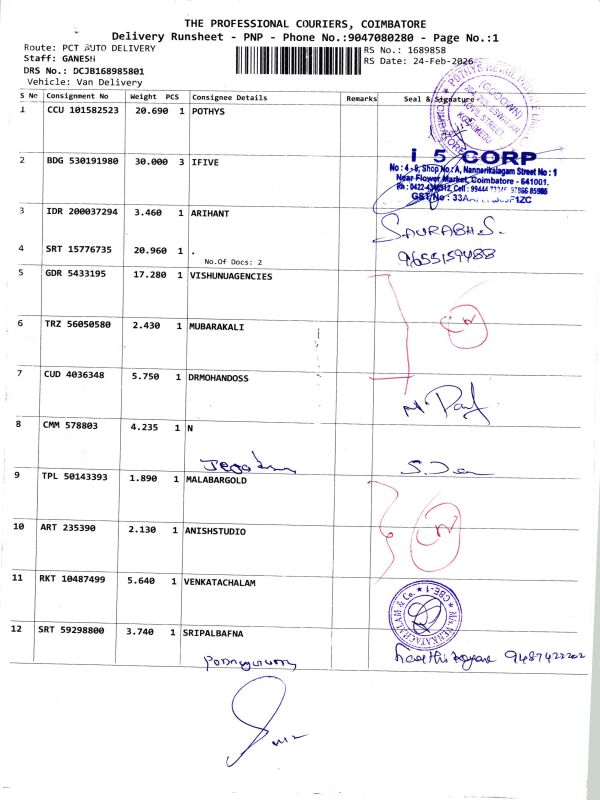 THE PROFESSIONAL COURIERS, COIMBATORE
Delivery Runsheet - PNP - Phone No.:9047080280 - Page No.:1
Route: PCT AUTO DELIVERY
Staff: GANESH
DRS No.: DCJB168985801
Vehicle: Van Delivery
RS No.: 1689858
RS Date: 24-Feb-2026
S No Consignment No Weight PCS Consignee Details Remarks Seal & Signature
1 CCU 101582523 20.690 1 POTHYS
(GODOWN)
2 BDG 530191980 30.000 3 IFIVE
i 5 CORP
No : 4-9, Shop No : A, Nannerikalagam Street No : 1
Near Flower Market, Coimbatore - 641001.
3 IDR 200037294 3.460 1 ARIHANT
SAURABH.S.
4 SRT 15776735 20.960 1 .
No.Of Docs: 2
9655159488
5 GDR 5433195 17.280 1 VISHUNUAGENCIES
6 TRZ 56050580 2.430 1 MUBARAKALI
7 CUD 4036348 5.750 1 DRMOHANDOSS
8 CMM 578803 4.235 1 N
9 TPL 50143393 1.890 1 MALABARGOLD
10 ART 235390 2.130 1 ANISHSTUDIO
11 RKT 10487499 5.640 1 VENKATACHALAM
M/s. VENKATACHALAM & Co. CBE-1
12 SRT 59298800 3.740 1 SRIPALBAFNA